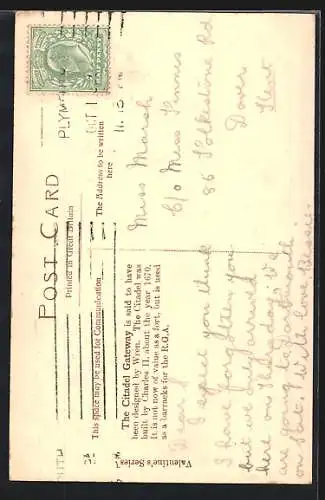 POST CARD
Printed in Great Britain
This space may be used for Communication
The Address to be written
here
PLYMOUTH
OCT 1
11.15 AM
The Citadel Gateway is said to have
been designed by Wren. The Citadel was
built by Charles II. about the year 1670.
It is not now of value as a fort, but is used
as a barracks for the R.G.A.
Valentine's Series
Miss Marsh
C/o Miss
86 Folkestone Rd
Dover
Kent
I expect you think
I have forgotten you.
but we
here on Tuesday. We
are
on
Love. Bessie.